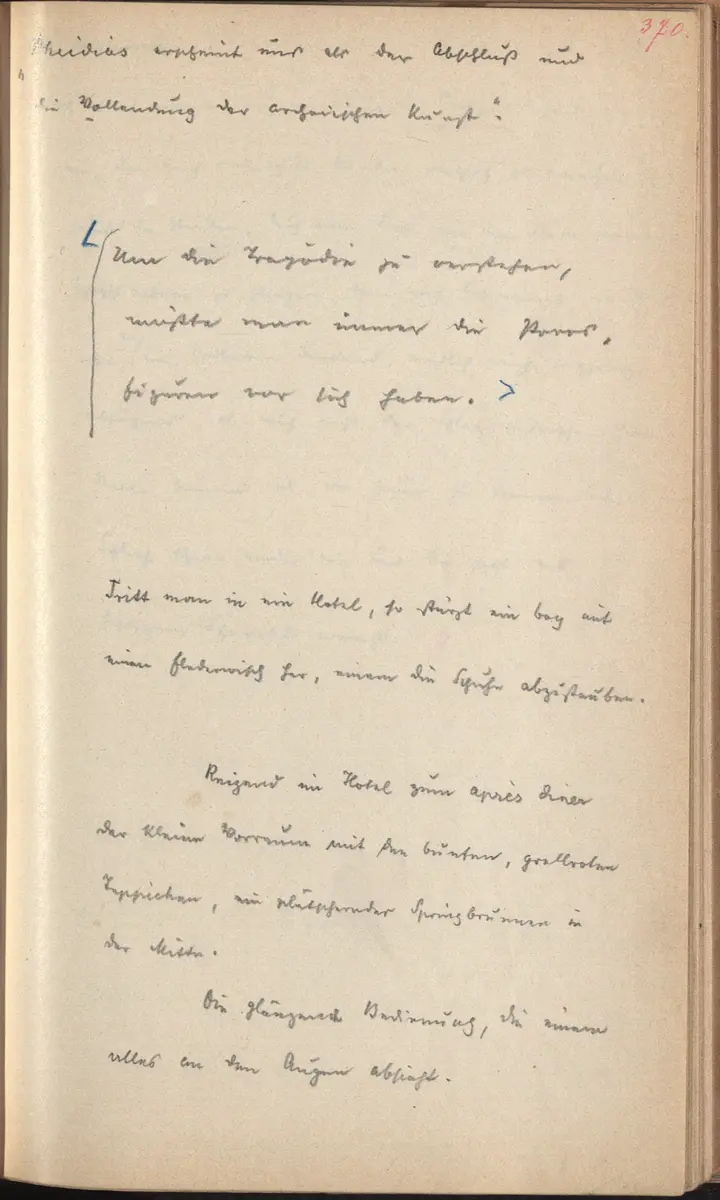 370.
Pheidias erscheint uns als der Abschluß und
„die Vollendung der archaischen Kunst“.
Um die Tragödie zu verstehen,
müßte man immer die Poros-
figuren vor sich haben.
Tritt man in ein Hotel, so stürzt ein boy mit
einem Flederwisch her, einem die Schuhe abzustauben.
Reizend im Hotel zum après diner
der kleine Vorraum mit den bunten, grellroten
Teppichen, ein plätschernder Springbrunnen in
der Mitte.
Die glänzende Bedienung, die einem
alles an den Augen absieht.